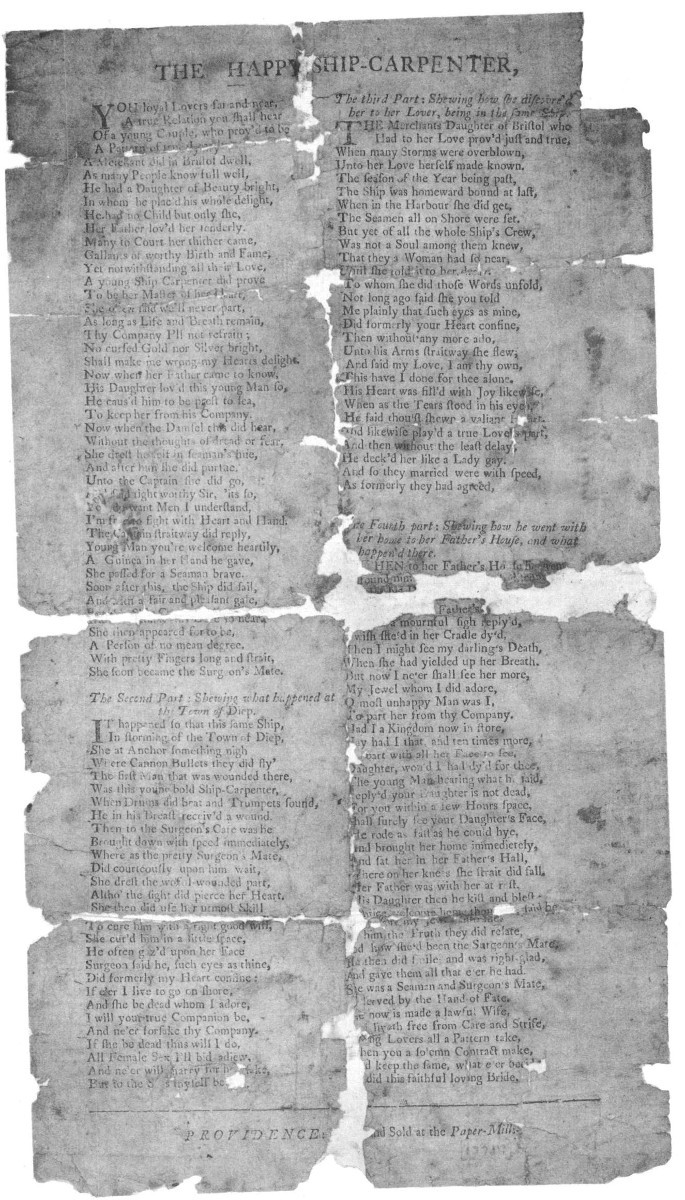 THE HAPPY SHIP-CARPENTER,
YOU loyal Lovers far and near,
A true Relation you shall hear
Of a young Couple, who prov'd to be
A Pattern of
A Merchant did in Bristol dwell,
As many People know full well,
He had a Daughter of Beauty bright,
In whom he plac'd his whole delight,
He had no Child but only she,
Her Father lov'd her tenderly.
Many to Court her thither came,
Gallants of worthy Birth and Fame,
Yet notwithstanding all their Love,
A young Ship Carpenter did prove
To be her Master of her Heart,
She often said we'll never part,
As long as Life and Breath remain,
Thy Company I'll not refrain;
No cursed Gold nor Silver bright,
Shall make me wrong my Hearts delight.
Now when her Father came to know,
His Daughter lov'd this young Man so,
He caus'd him to be prest to sea,
To keep her from his Company.
Now when the Damsel this did hear,
Without the thoughts of dread or fear,
She drest herself in seaman's
And after him she did pursue.
Unto the Captain she did go,
right worthy Sir, 'tis so,
want Men I understand,
I'm to fight with Heart and Hand.
The Captain straitway did reply,
Young Man you're welcome heartily,
A Guinea in her Hand he gave,
She passed for a Seaman brave.
Soon after this, the Ship did sail,
And with a fair and pleasant gale,
She then appeared for to be,
A Person of no mean degree.
With pretty Fingers long and strait,
She soon became the Surgeon's Mate.
The Second Part: Shewing what happened at
the Town of Diep.
IT happened so that this same Ship,
In storming of the Town of Diep,
She at Anchor something nigh
Where Cannon Bullets they did fly
The first Man that was wounded there,
Was this young bold Ship-Carpenter,
When Drums did beat and Trumpets sound,
He in his Breast receiv'd a wound.
Then to the Surgeon's Care was he
Brought down with speed immediately,
Where as the pretty Surgeon's Mate,
Did courteously upon him wait,
She drest the woful wounded part,
Altho' the sight did pierce her Heart.
She then did use her utmost Skill
To cure him with a right good will,
She cur'd him in a little space,
He often gaz'd upon her Face
Surgeon said he, such eyes as thine,
Did formerly my Heart confine:
If e'er I live to go on shore,
And she be dead whom I adore,
I will your true Companion be,
And ne'er forsake thy Company.
If she be dead thus will I do,
All Female Sex I'll bid adieu,
And ne'er will marry for her sake,
But to the myself
The third Part: Shewing how she discover'd
her to her Lover, being in the same Ship.
THE Merchants Daughter of Bristol who
Had to her Love prov'd just and true,
When many Storms were overblown,
Unto her Love herself made known.
The season of the Year being past,
The Ship was homeward bound at last,
When in the Harbour she did get,
The Seamen all on Shore were set.
But yet of all the whole Ship's Crew,
Was not a Soul among them knew,
That they a Woman had so near,
Until she told it to her
To whom she did those Words unfold,
Not long ago said she you told
Me plainly that such eyes as mine,
Did formerly your Heart confine,
Then without any more ado,
Unto his Arms straitway she flew,
And said my Love, I am thy own,
This have I done for thee alone.
His Heart was fill'd with Joy likewise,
When as the Tears stood in his eyes,
He said thou'st shewn a valiant
And likewise play'd a true Lover's part,
And then without the least delay,
He deck'd her like a Lady gay.
And so they married were with speed,
As formerly they had agreed,
The Fourth part: Shewing how he went with
her home to her Father's House, and what
happen'd there.
HEN to her Father's
found him
Father's
a mournful sigh reply'd,
wish she'd in her Cradle dy'd,
Then I might see my darling's Death,
When she had yielded up her Breath.
But now I ne'er shall see her more,
My Jewel whom I did adore,
O most unhappy Man was I,
To part her from thy Company.
Had I a Kingdom now in store,
Nay had I that, and ten times more,
part with all her Face to see,
Daughter, wou'd I had dy'd for thee,
The young Man hearing what he said,
Reply'd your Daughter is not dead,
For you within a few Hours space,
Shall surely see your Daughter's Face,
He rode as fast as he could hye,
And brought her home immediately,
And sat her in her Father's Hall,
Where on her knees she strait did fall,
Her Father was with her at rest.
His Daughter then he kist and blest
welcome home
him the Truth they did relate,
how she'd been the Surgeon's Mate,
He then did smile, and was right glad,
And gave them all that e'er he had.
She was a Seaman and Surgeon's Mate,
served by the Hand of Fate.
now is made a lawful Wife,
liveth free from Care and Strife,
young Lovers all a Pattern take,
When you a solemn Contract make,
keep the same, what e'er
did this faithful loving Bride,
PROVIDENCE: and Sold at the Paper-Mill.